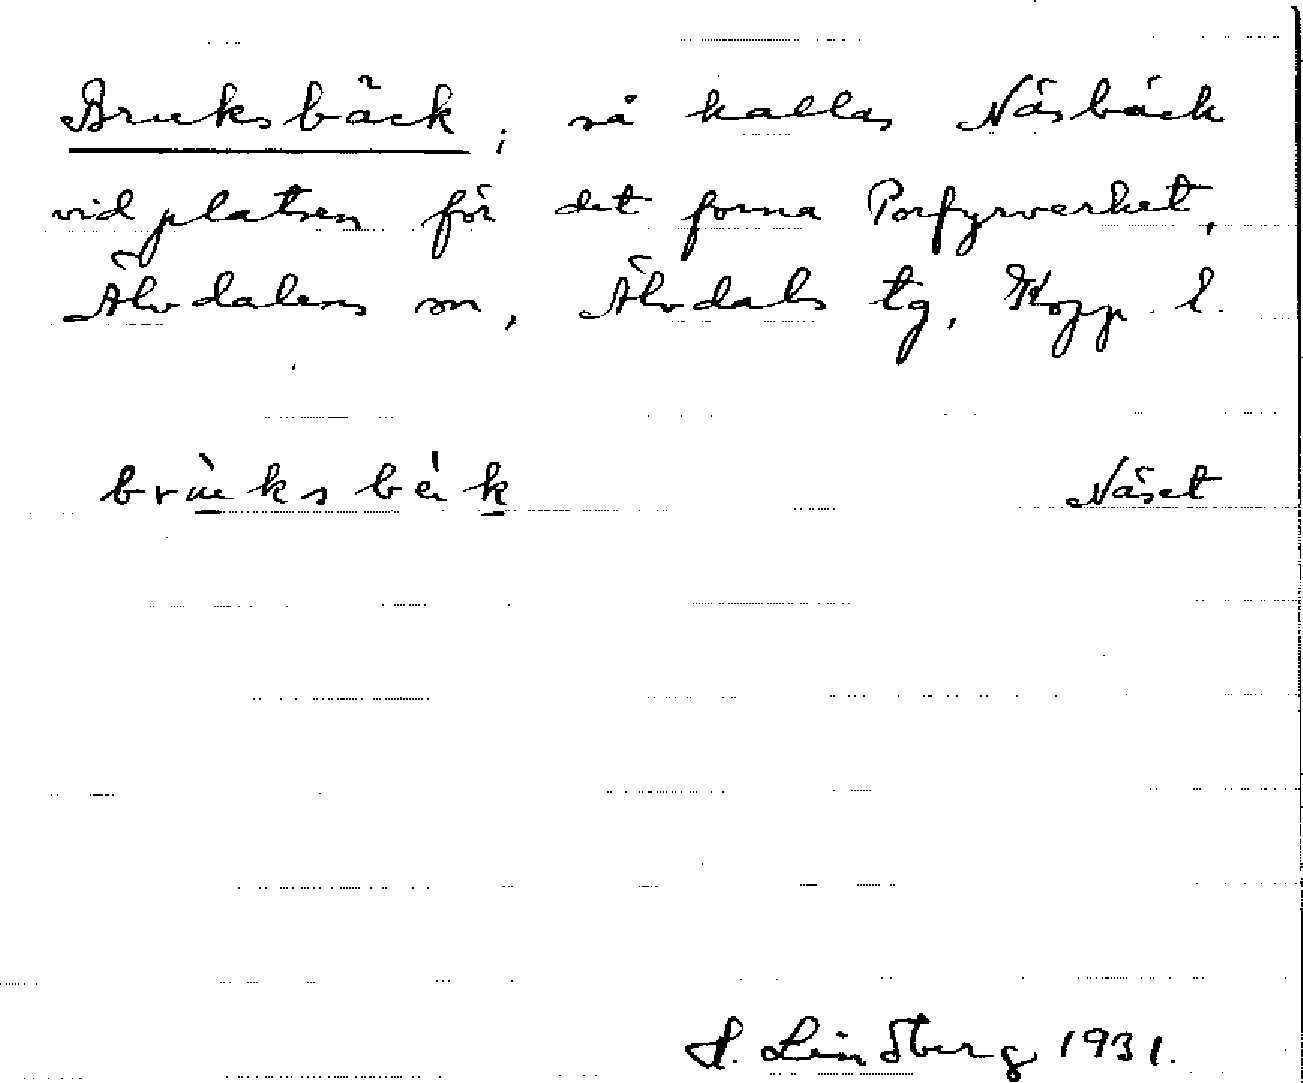 Bruksbäck; så kallas Näsbäck
vid platsen för det forna Porfyrverket,
Älvdalens sn, Älvdals tg, Kopp. l.
Näset
Lindberg 1931.